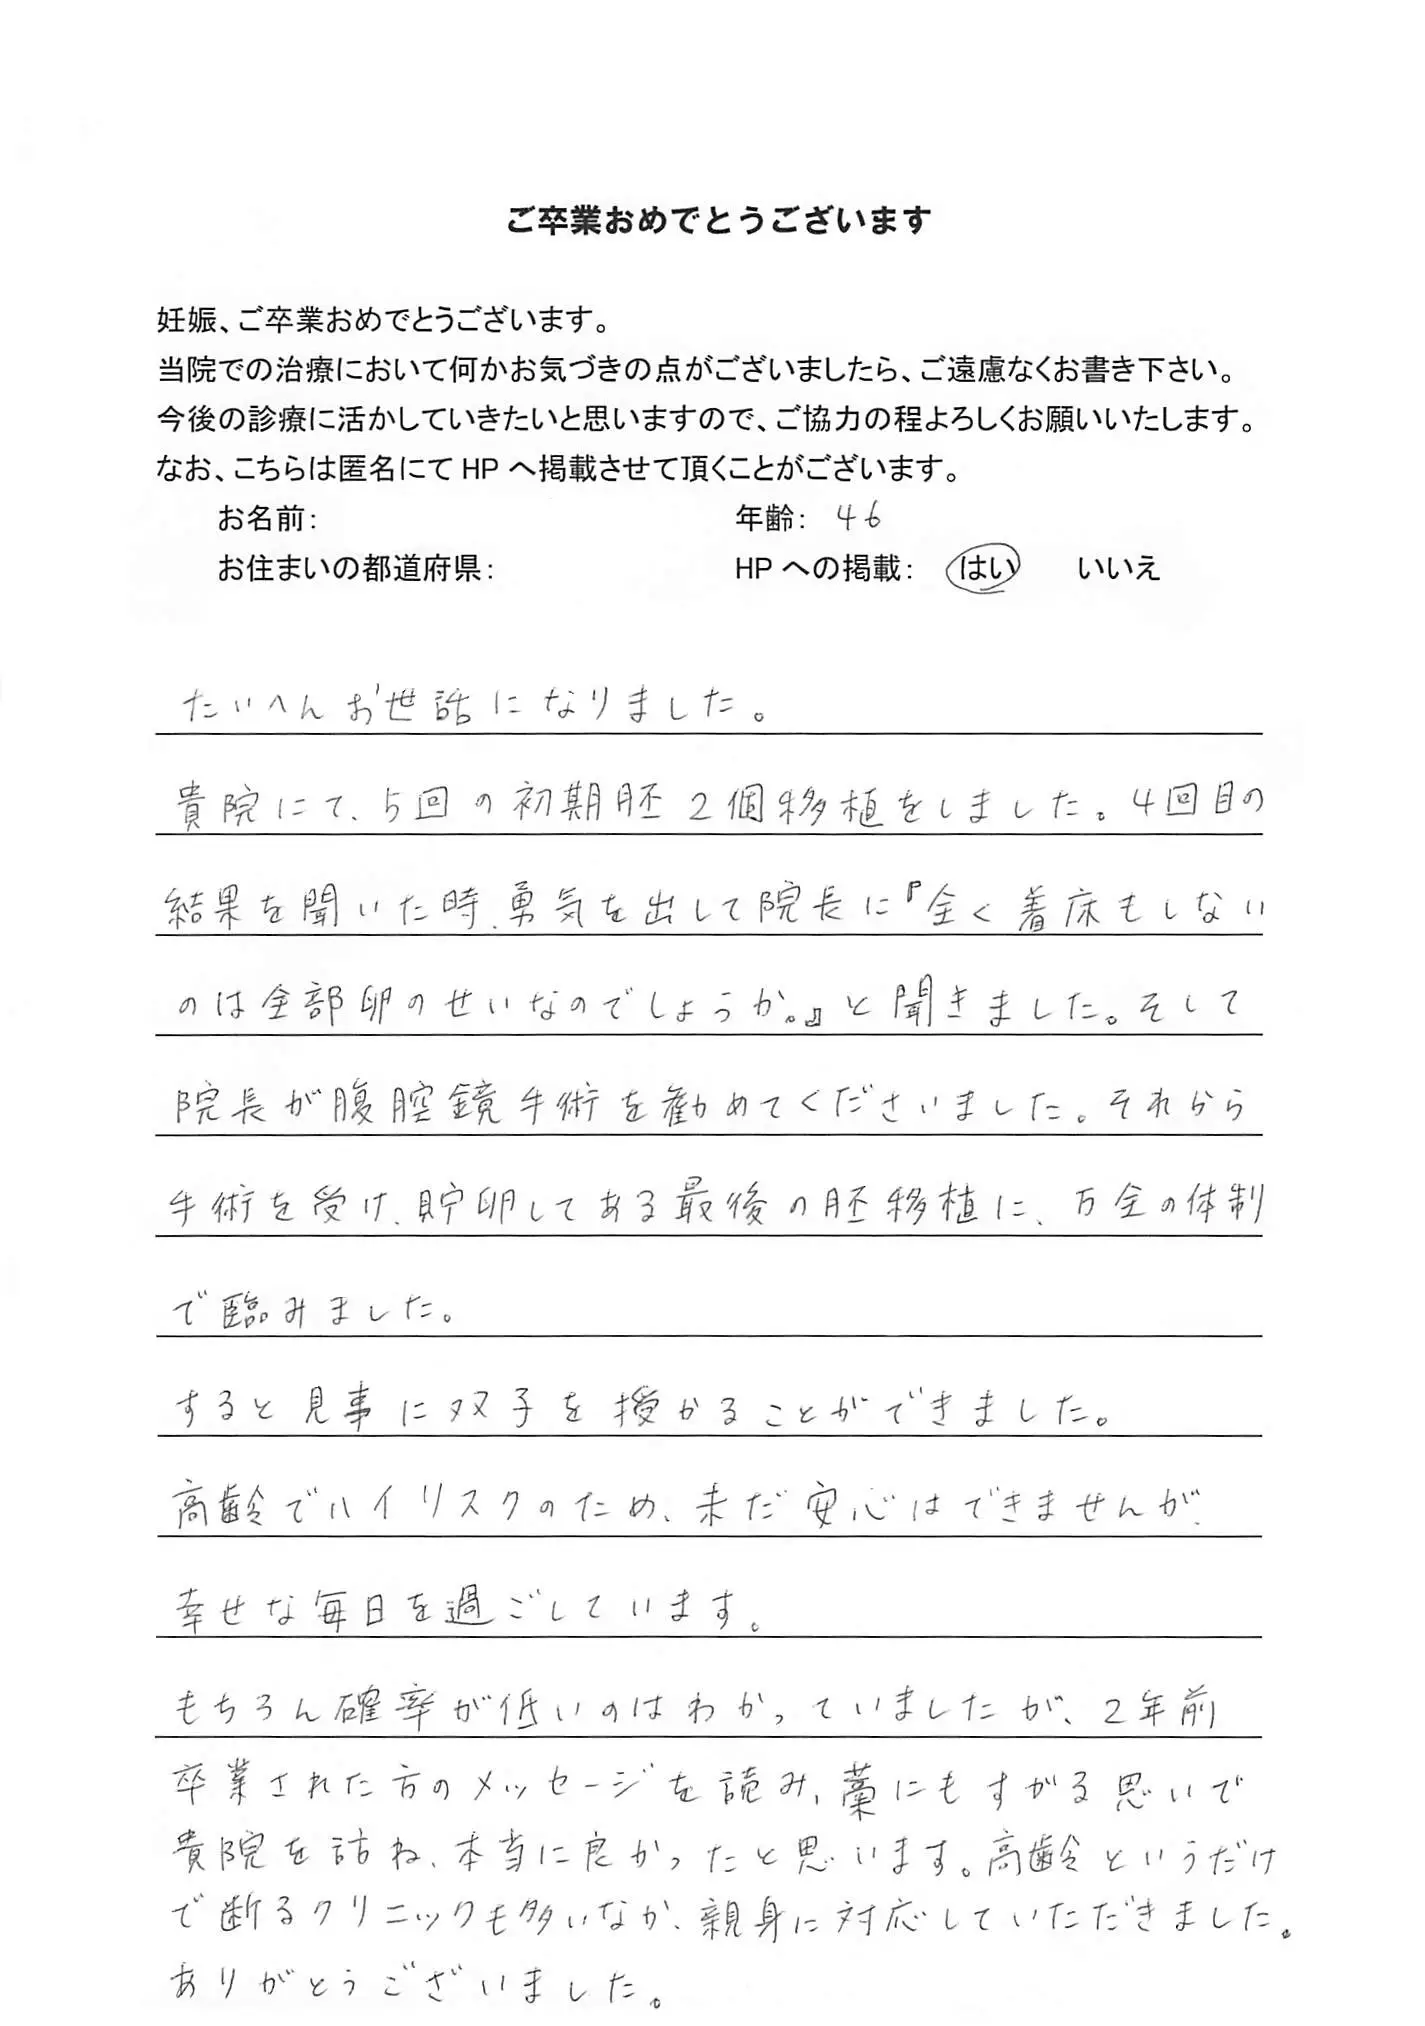 ご卒業おめでとうございます
妊娠、ご卒業おめでとうございます。
当院での治療において何かお気づきの点がございましたら、ご遠慮なくお書き下さい。
今後の診療に活かしていきたいと思いますので、ご協力の程よろしくお願いいたします。
なお、こちらは匿名にて HP へ掲載させて頂くことがございます。
お名前： 年齢： 46
お住まいの都道府県： HP への掲載： はい いいえ
たいへんお世話になりました。
貴院にて、5回の初期胚2個移植をしました。4回目の
結果を聞いた時、勇気を出して院長に『全く着床もしない
のは全部卵のせいなのでしょうか。』と聞きました。そして
院長が腹腔鏡手術を勧めてくださいました。それから
手術を受け、貯卵してある最後の胚移植に、万全の体制
で臨みました。
すると見事に双子を授かることができました。
高齢でハイリスクのため、未だ安心はできませんが、
幸せな毎日を過ごしています。
もちろん確率が低いのはわかっていましたが、2年前
卒業された方のメッセージを読み、藁にもすがる思いで
貴院を訪ね、本当に良かったと思います。高齢というだけ
で断るクリニックも多いなか、親身に対応していただきました。
ありがとうございました。